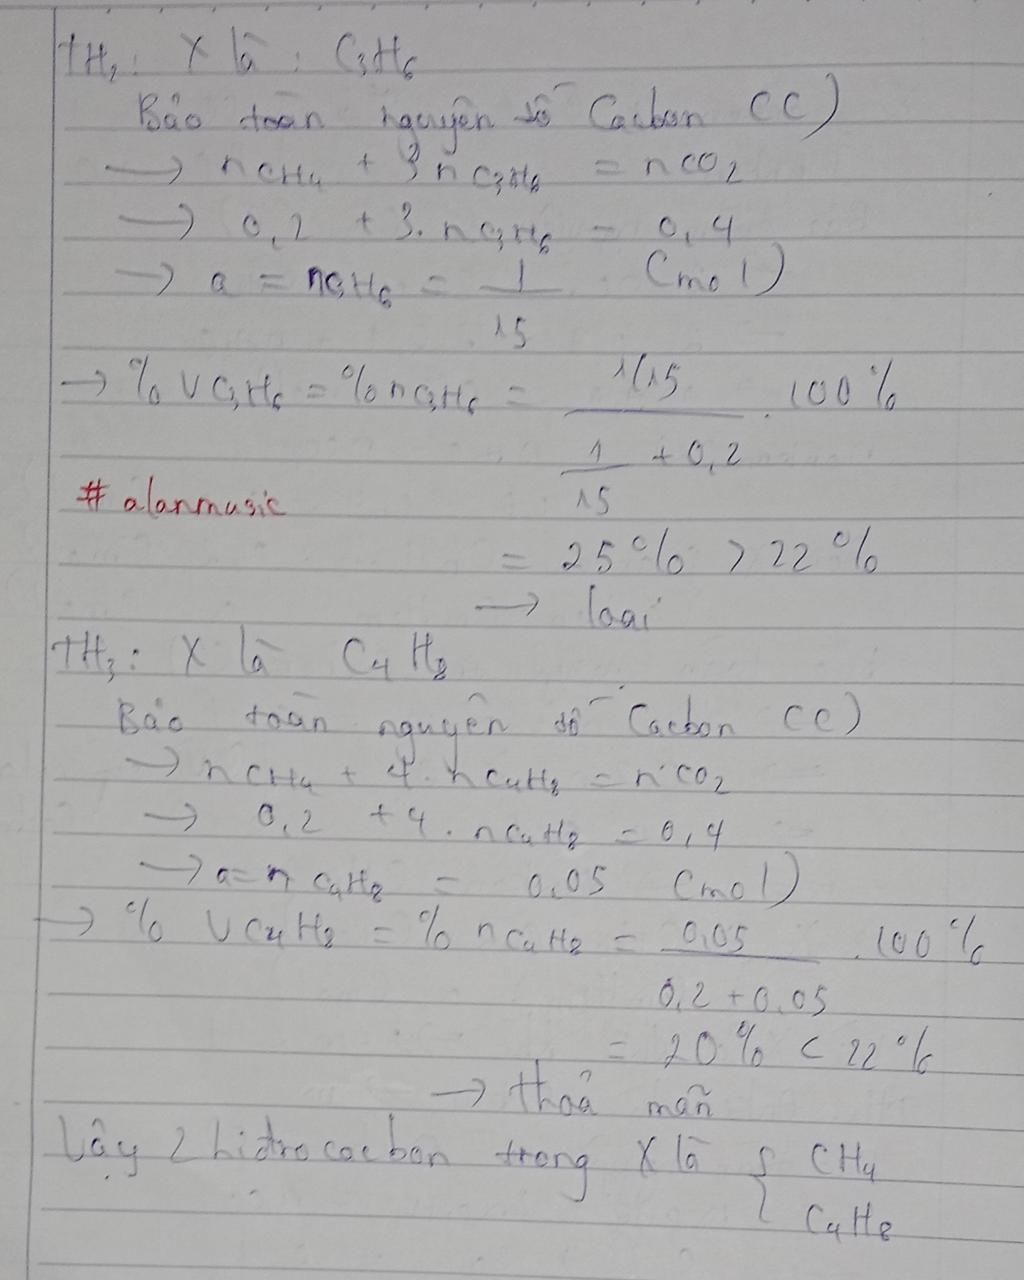 TH₂: X là: C₃H₆
Bảo toàn nguyên tố Cacbon (C)
→ nCH₄ + 3nC₃H₆ = nCO₂
→ 0,2 + 3.nC₃H₆ = 0,4
→ a = nC₃H₆ = 1/15 (mol)
→ %VC₃H₆ = %nC₃H₆ = (1/15)/(1/15 + 0,2) . 100%
# alanmusic
= 25% > 22%
→ loại
TH₃: X là C₄H₈
Bảo toàn nguyên tố Cacbon (C)
→ nCH₄ + 4.nC₄H₈ = nCO₂
→ 0,2 + 4.nC₄H₈ = 0,4
→ a = nC₄H₈ = 0,05 (mol)
→ % VC₄H₈ = % nC₄H₈ = 0,05/(0,2 + 0,05) . 100%
= 20% < 22%
→ thoả mãn
Vậy 2 hidrocacbon trong X là { CH₄
C₄H₈